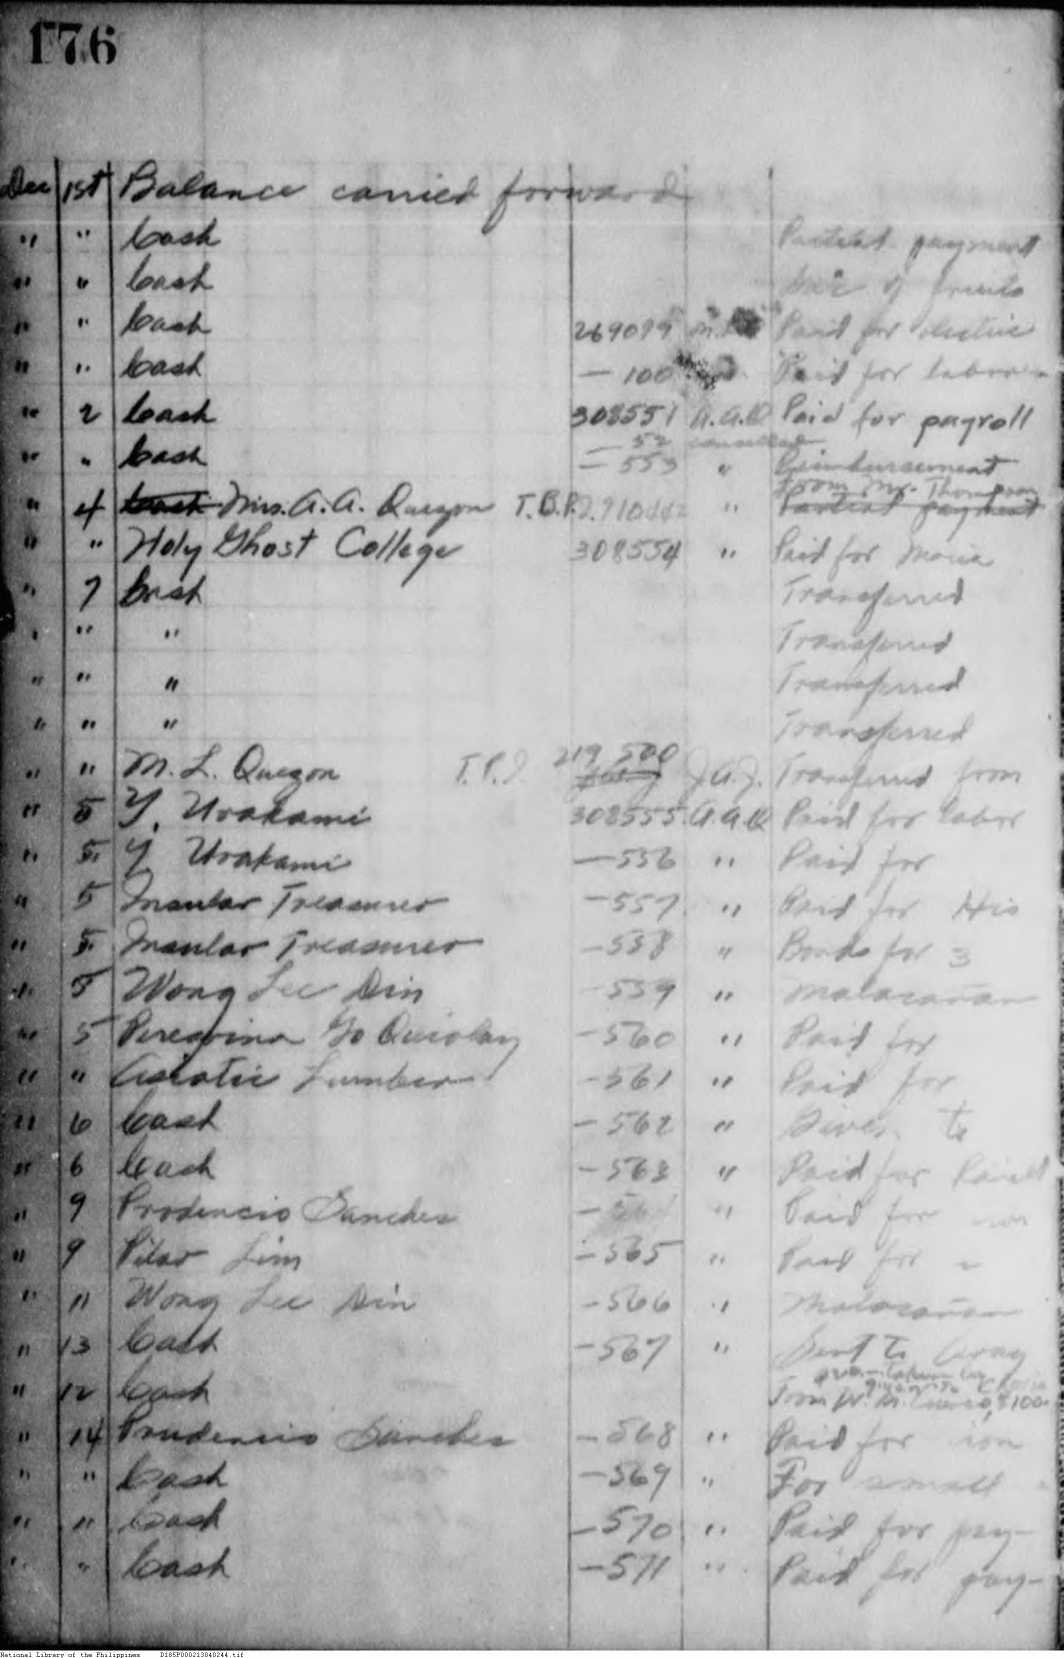 176
Dec 1st Balance carried forward
" " Cash Partial payment
" " Cash of fruits
" " Cash 269099 Paid for electric
" " Cash — 100 Paid for labor
" 2 Cash 308551 A.A.Q Paid for payroll
— 52 cancelled
" " Cash — 553 " Reimbursement
from Mr. Thompson
" 4 Cash Mrs. A. A. Quezon T.B.P. " Partial payment
" " Holy Ghost College 308554 " Paid for Maria
" 7 Cash Transferred
" " " Transferred
" " " Transferred
" " " Transferred
219 500
" " M. L. Quezon J.A.J. Transferred from
" 5 Y. Urakami 308555 A.A.Q Paid for labor
" 5 Y Urakami — 556 " Paid for
" 5 Insular Treasurer — 557 " Paid for His
" 5 Insular Treasurer — 558 " Bonds for 3
" 5 Wong Lee Din 559 " Malacañan
" 5 Peregrina — 560 " Paid for
" " Asiatic Lumber — 561 " Paid for
" 6 Cash — 562 " Given to
" 6 Cash — 563 " Paid for
" 9 Prodencio Sanches — " Paid for
" 9 Pilar Lim — 565 " Paid for
" 11 Wong Lee Din — 566 " Malacañan
" 13 Cash — 567 " Sent to
given to
" 12 Cash from $100.
" 14 Prudencio Sanches — 568 " Paid for
" " Cash — 569 " For small
" " Cash — 570 " Paid for pay-
" " Cash — 571 " Paid for pay-
National Library of the Philippines D185P000213040244.tif